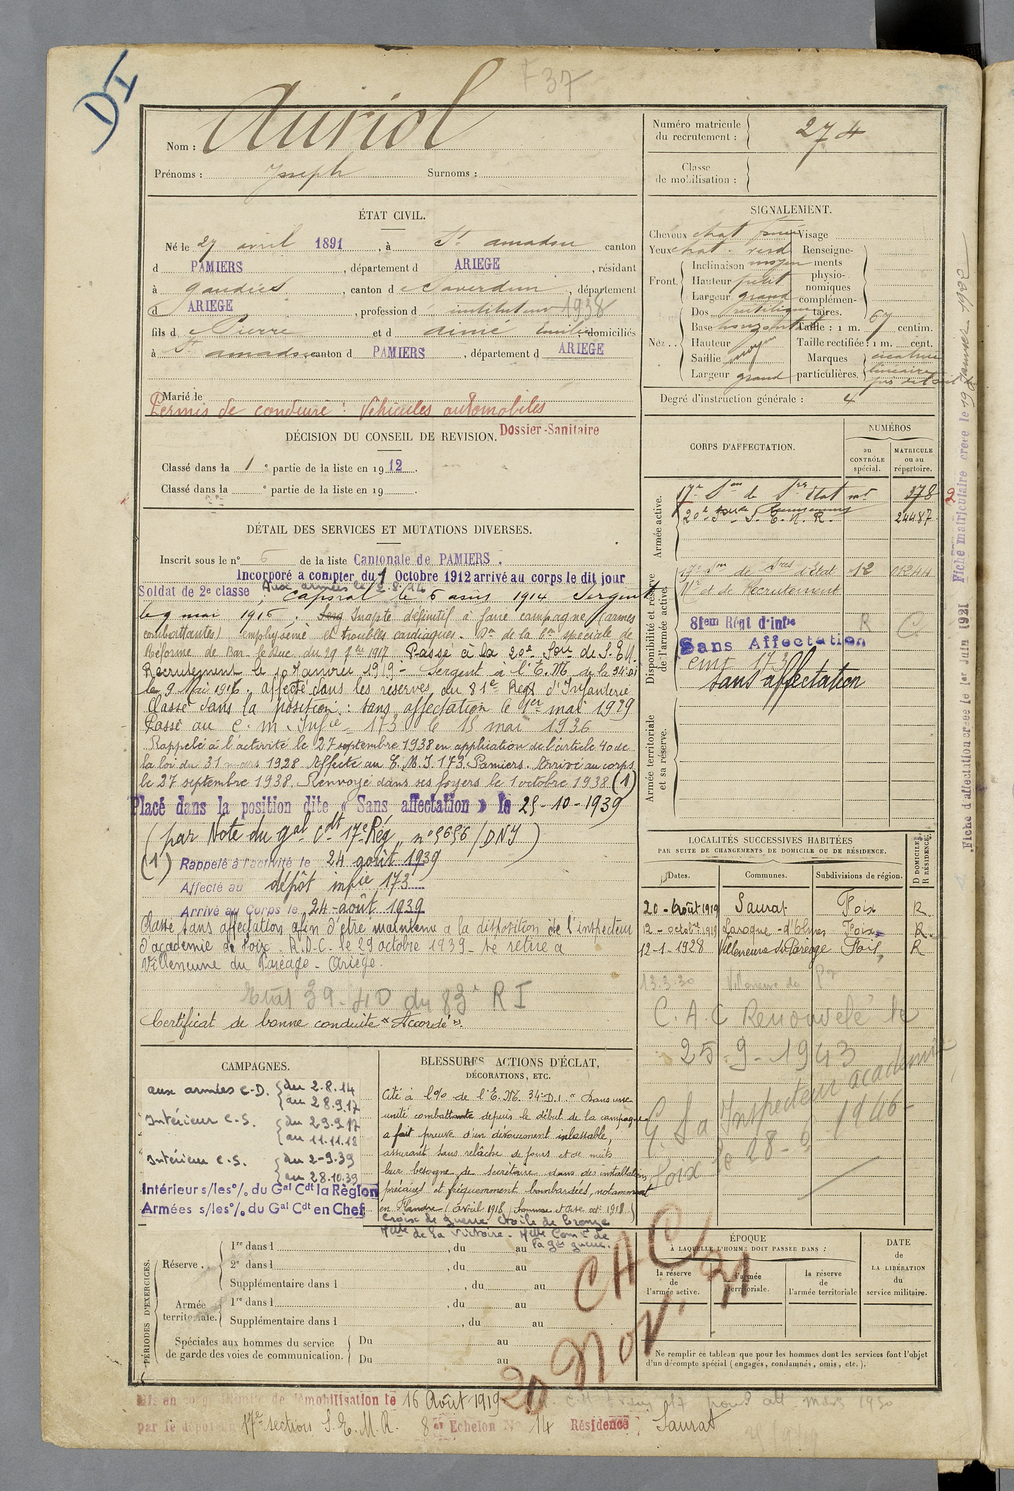 F 37
DI
Nom : Auriol
Prénoms : Joseph Surnoms :
Numéro matricule du recrutement : 274
Classe de mobilisation :
ÉTAT CIVIL.
Né le 27 avril 1891, à St amadou canton
d PAMIERS, département d ARIEGE, résidant
à gaudiès, canton d e Saverdun, département
d ARIEGE, profession d instituteur 1938
fils d e Pierre et d domiciliés
à St amadou canton d PAMIERS, département d ARIEGE
Marié le
Permis de conduire : Véhicules automobiles
SIGNALEMENT.
Cheveux chat Visage
Yeux chat. Renseignements physionomiques complémentaires.
Front. Inclinaison moyen
Hauteur petit
Largeur grand
Nez. Dos rectiligne
Base horizontal Taille : 1 m. 67 centim.
Hauteur moyen Taille rectifiée : 1 m. cent.
Saillie moy Marques particulières. cicatrice linéaire
Largeur grand
Degré d'instruction générale : 4
DÉCISION DU CONSEIL DE REVISION. Dossier-Sanitaire
Classé dans la 1e partie de la liste en 1912.
Classé dans la e partie de la liste en 19
CORPS D'AFFECTATION.
NUMÉROS
au CONTRÔLE spécial.
MATRICULE ou au répertoire.
Armée active.
17e Son de Sres d'état mr 278
20e S. E. M. R. 24487
Disponibilité et réserve de l'armée active.
17e Son de Sres d'état 12 01244
Mr et de Recrutement
81em Régt d'Infie R C.
Sans Affectation
cmI 173
sans affectation
Armée territoriale et sa réserve.
DÉTAIL DES SERVICES ET MUTATIONS DIVERSES.
Inscrit sous le n° 5 de la liste Cantonale de PAMIERS.
Incorporé a compter du 1 Octobre 1912 arrivé au corps le dit jour
Soldat de 2e classe Aux armées le 2.8.14, Caporal le 6 août 1914 Sergent
le 9 mai 1916. Inapte définitif à faire campagne (armes
combattantes) emphysème et troubles cardiaques. Don de la Con spéciale de
Réforme de Bar-le-Duc, du 29 7bre 1917 Passé à la 20e Son de S. E. M.
Recrutement le 10 janvier 1919 - Sergent à l'E. M. de la 34e DI
le 9 Mai 1916. affecté dans les réserves, du 81e Régt d'Infanterie
Classé dans la position : sans affectation le 1er mai 1929
Passé au c. m. Infie 173 le 15 mai 1936
Rappelé à l'activité le 27 septembre 1938 en application de l'article 40 de
la loi du 31 mars 1928 Affecté au C. M. I. 173 Pamiers. Arrivé au corps
le 27 septembre 1938. Renvoyé dans ses foyers le 1 octobre 1938 (1)
Placé dans la position dite « Sans affectation » le 25-10-1939
(par Note du gal Cdt 17e Rég n° 8686 / DNI)
(1) Rappelé à l'activité le 24 août 1939
Affecté au dépôt infie 173
Arrivé au Corps le 24-août 1939
Classé sans affectation afin d'être maintenu a la disposition de l'inspecteur
d'académie de Foix. R.D.C. le 29 octobre 1939 - Se retire a
Villeneuve du Paréage - Ariège.
Etat 39-40 du 83e RI
Certificat de bonne conduite "Accordé".
LOCALITÉS SUCCESSIVES HABITÉES
PAR SUITE DE CHANGEMENTS DE DOMICILE OU DE RÉSIDENCE.
Dates. Communes. Subdivisions de région. D DOMICILE R RÉSIDENCE.
20-Août 1919 Saurat Foix R.
12-octobre 1919 Laroque-d'Olmes Foix R.
12-1-1928 Villeneuve du Paréage Foix R
13.3.30 Villeneuve du Pge
C. A. C Renouvelé le
25-9-1943
Inspecteur académie
Foix le 28-6 1946
CAMPAGNES.
aux armées C-D. du 2.8.14 au 28.9.17
Intérieur C.S. du 29.9.17 au 11.11.18
Intérieur C.S. du 2-9.39 au 28.10.39
Intérieurs s/les o/. du Gal Cdt la Région
Armées s/les o/. du Gal Cdt en Chef
BLESSURES, ACTIONS D'ÉCLAT,
DÉCORATIONS, ETC.
Cité à l'O. de l'E. M. 34e D.I. "Dans une
unité combattante depuis le début de la campagne
a fait preuve d'un dévouement inlassable,
assurant sans relâche de jours et de nuits
leur besogne de secrétaire dans des installations
précaires et fréquemment bombardées, notamment
en Flandre (Avril 1918, Somme et Oise oct. 1918)
Croix de guerre étoile de bronze
Mlle de la Victoire. Mlle Comve de
la gde guerre.
PÉRIODES D'EXERCICES.
Réserve. 1re dans l , du au
2e dans l , du au
Supplémentaire dans l , du au
Armée territoriale. 1re dans l , du au
Supplémentaire dans l , du au
Spéciales aux hommes du service de garde des voies de communication. Du au
Du au
CAC
20 Nov. 31
ÉPOQUE
À LAQUELLE L'HOMME DOIT PASSER DANS :
la réserve de l'armée active.
l'armée territoriale.
la réserve de l'armée territoriale
DATE DE LA LIBÉRATION du service militaire.
Ne remplir ce tableau que pour les hommes dont les services font l'objet
d'un décompte spécial (engagés, condamnés, omis, etc.).
Mis en congé illimité de démobilisation le 16 Août 1919
par le dépôt 17e section S. E. M. R. 8e Echelon N° 14 Résidence : Saurat
Fiche d'affectation créée le 1er Juin 1921
Fiche matriculaire créée le